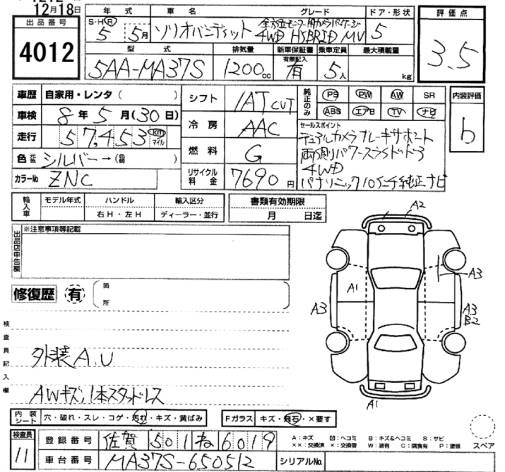 12月18日
出品番号
4012
年式 車名 グレード ドア・形状
S・H・R 5年 5月 ソリオバンディット 全方位モニター用カメラパッケージ 4WD HYBRID MV 5
型式 排気量 新車保証書 乗車定員 最大積載量
5AA-MA37S 1200cc 有 記録簿有 5人 kg
評価点
3.5
内装評価
b
車歴 自家用・レンタ( )
車検 8年5月(30日)
走行 57,453 km マイル
色 シルバー→
カラーNo ZNC
シフト 1AT CVT
冷房 AAC
燃料 G
リサイクル料金 7690円
純正のみ PS PW AW SR
ABS エアB TV ナビ
セールスポイント
デュアルカメラブレーキサポート
両側パワースライドドア
4WD
パナソニック10インチ純正ナビ
輸入車 モデル年式 ハンドル 輸入区分 書類有効期限
右H・左H ディーラー・並行 月 日迄
出品店申告欄 ※注意事項等記載
修復歴 有 箇所
検査員記入欄
外装A,U
AWキズ,1本スタッドレス
A2
A1
A3
A3
A3
B2
A1
内装シート 穴・破れ・スレ・コゲ・汚れ・キズ・黄ばみ
Fガラス キズ・飛石・×要す
スペア
検査員 11
登録番号 佐賀 501 ね 6019
車台番号 MA37S-650512
シリアルNo.
A:キズ U:ヘコミ B:キズ&ヘコミ S:サビ
××:交換済 ×:要交換 W:波有 C:腐食有 P:塗装